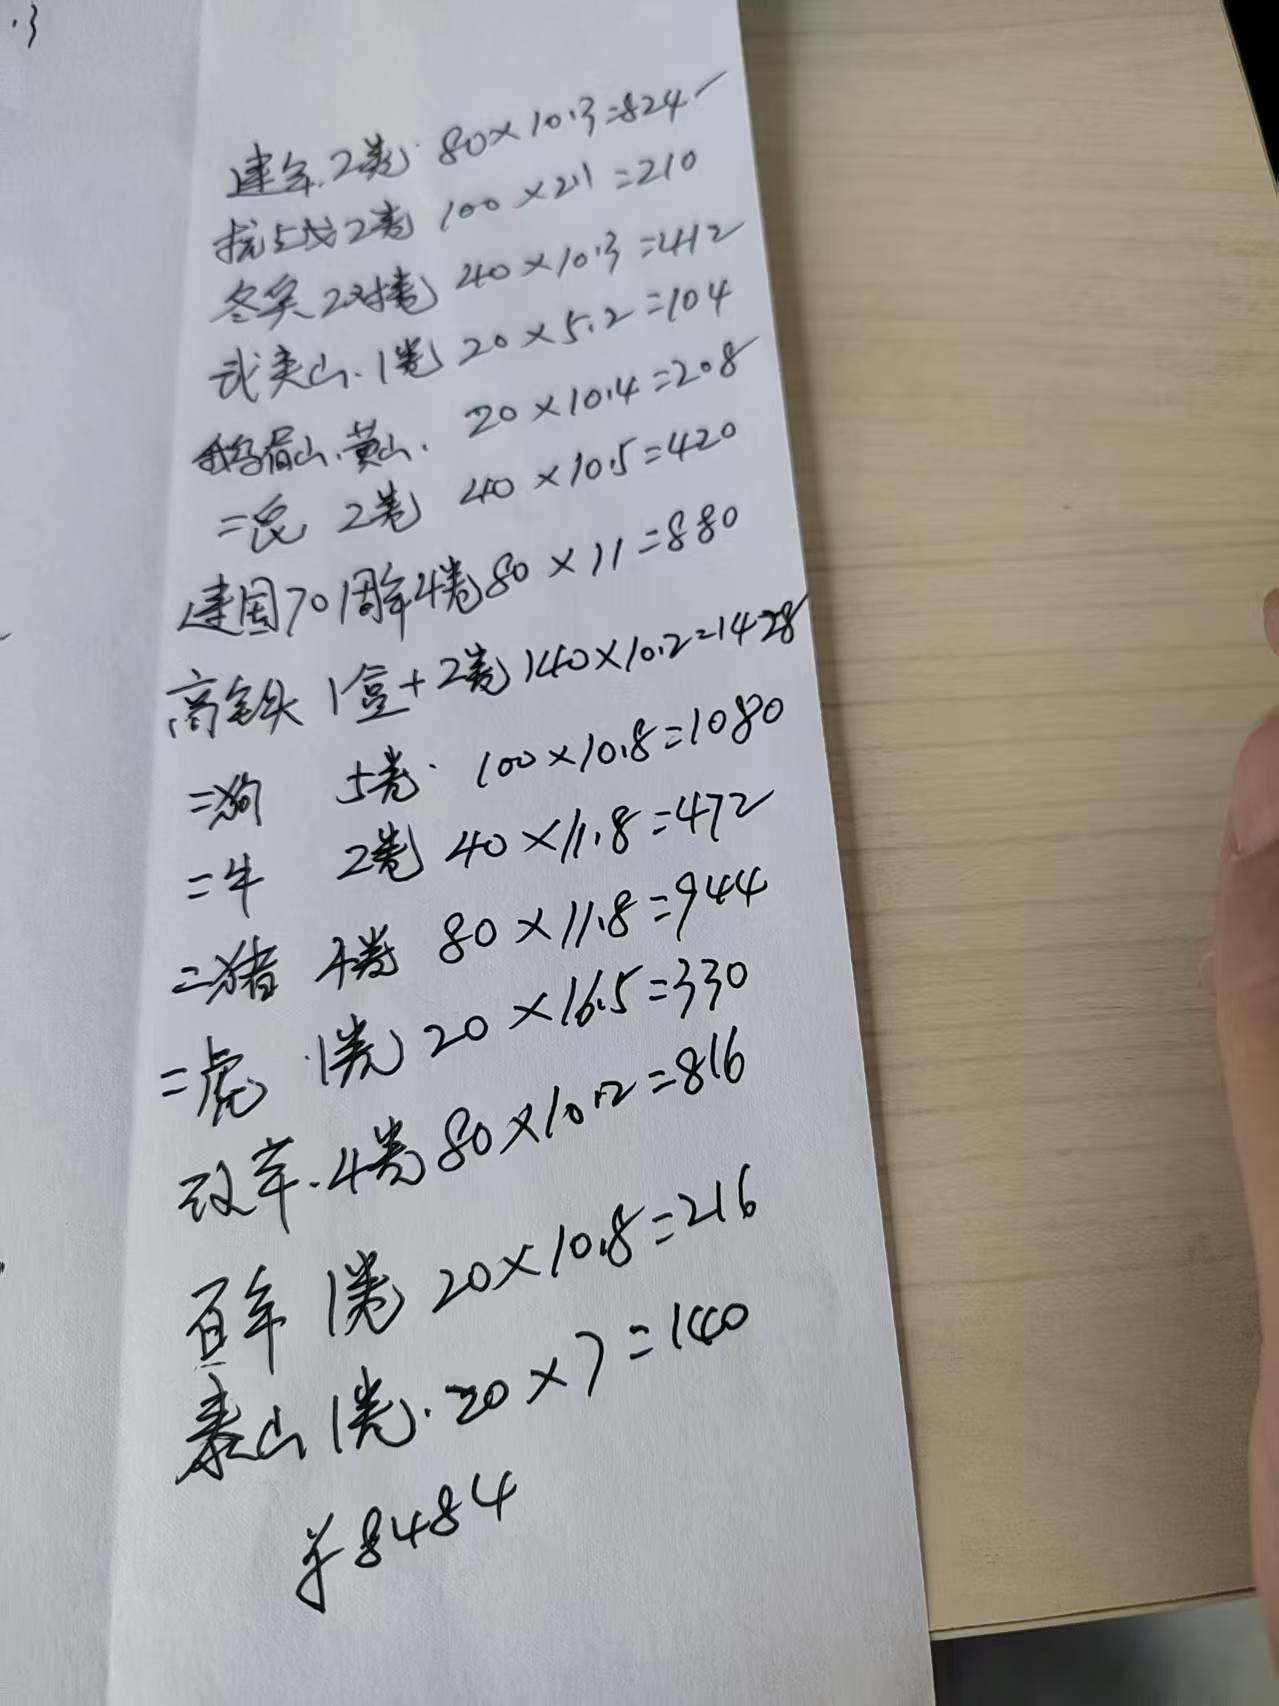 .3
建军.2卷 80×10.3=824
抗战2卷 100×2.1=210
冬奥2对卷 40×10.3=412
武夷山.1卷 20×5.2=104
峨眉山.黄山. 20×10.4=208
二兔 2卷 40×10.5=420
建国70周年4卷80×11=880
高铁 1盒+2卷140×10.2=1428
二狗 5卷. 100×10.8=1080
二牛 2卷 40×11.8=472
二猪 4卷 80×11.8=944
二虎 1卷 20×16.5=330
改革.4卷80×10.2=816
百年 1卷 20×10.8=216
泰山1卷.20×7=140
¥8484